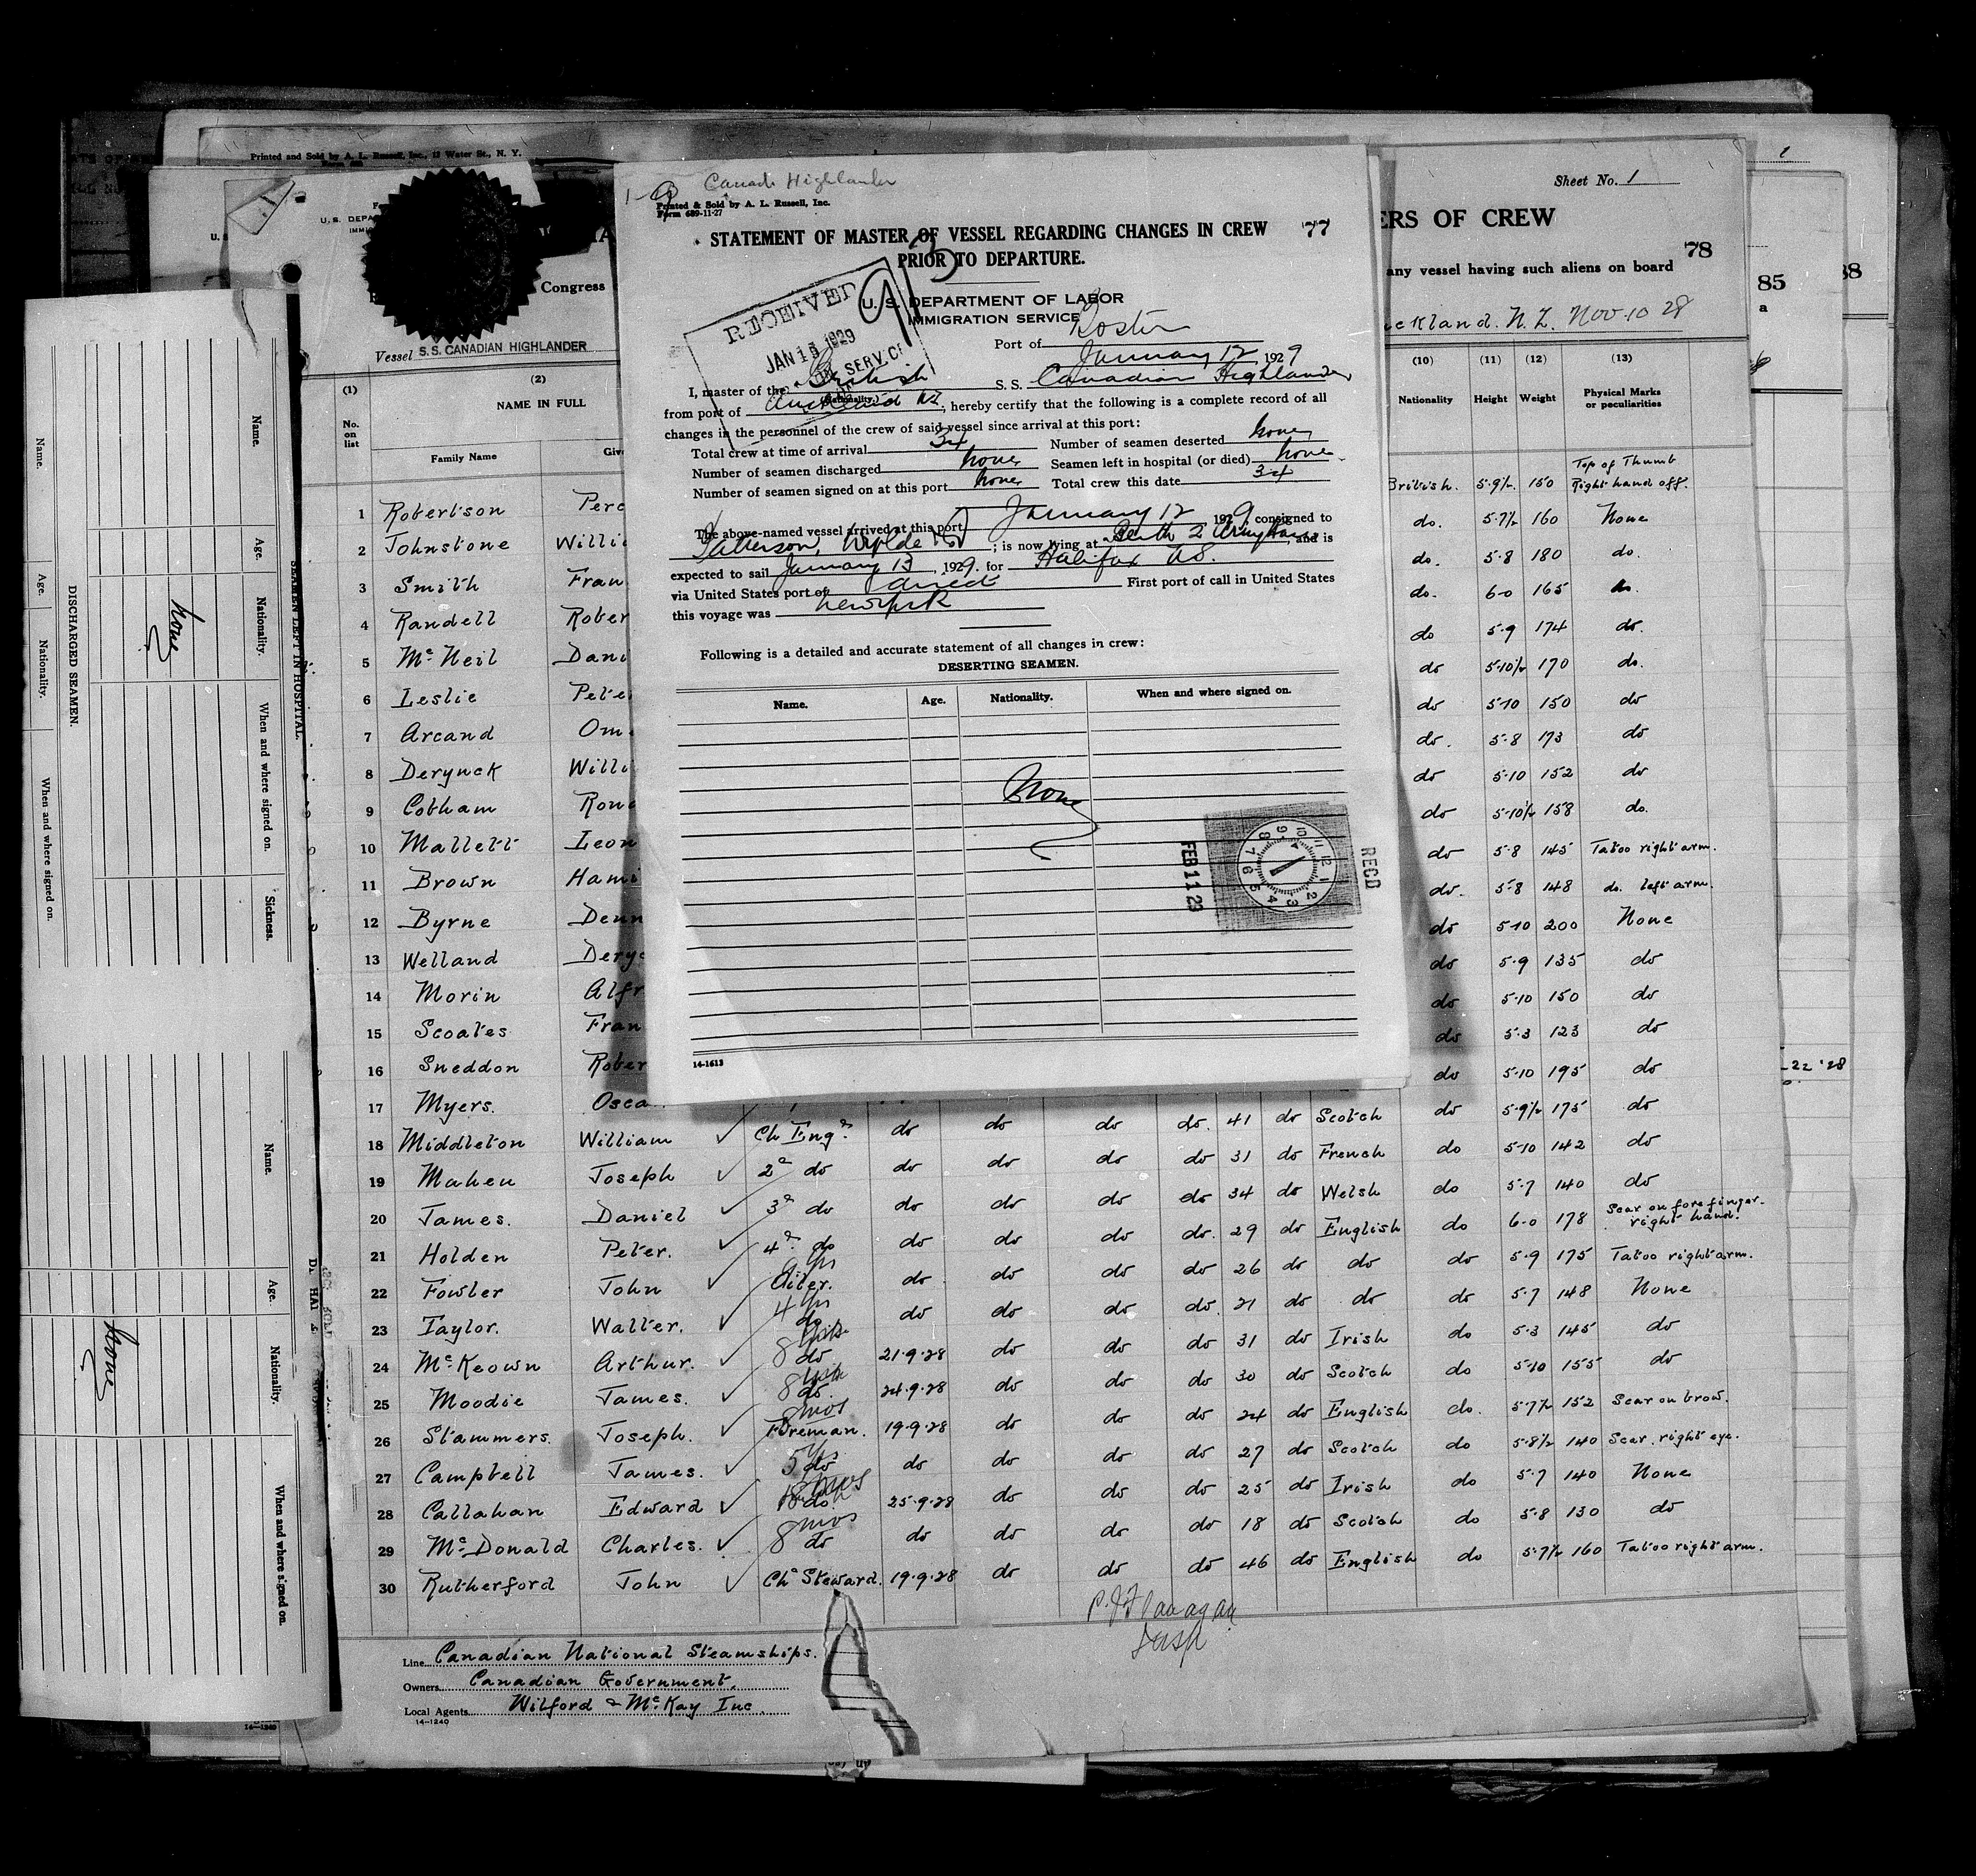 Printed and Sold by A. L. Russell, Inc., 13 Water St., N. Y.
Canada Highlander
Printed & Sold by A. L. Russell, Inc.
Form 689-11-27
STATEMENT OF MASTER OF VESSEL REGARDING CHANGES IN CREW
PRIOR TO DEPARTURE.
77
U. S. DEPARTMENT OF LABOR
IMMIGRATION SERVICE
RECEIVED
JAN 15 1929
Port of Boston
January 12 1929
I, master of the British S. S. Canadian Highlander
(Nationality.)
from port of Auckland NZ, hereby certify that the following is a complete record of all
changes in the personnel of the crew of said vessel since arrival at this port:
Total crew at time of arrival 34 Number of seamen deserted none
Number of seamen discharged none Seamen left in hospital (or died) none
Number of seamen signed on at this port none Total crew this date 34
The above-named vessel arrived at this port January 12 1929, consigned to
Patterson, Wylde Co; is now lying at Berth 2 Army Base, and is
expected to sail January 13, 1929. for Halifax NS.
via United States port of direct First port of call in United States
this voyage was New York
Following is a detailed and accurate statement of all changes in crew:
DESERTING SEAMEN.
Name. Age. Nationality. When and where signed on.
None
RECD
FEB 11 29
14-1613
Sheet No. 1
ERS OF CREW
78
any vessel having such aliens on board
85
88
a
ckland. N.Z. Nov. 10 28
Congress
Vessel S.S. CANADIAN HIGHLANDER
(1) (2) (10) (11) (12) (13)
No. on list
NAME IN FULL
Family Name
Nationality Height Weight Physical Marks or peculiarities
1 Robertson Perc British. 5.9½. 150 Top of Thumb Right hand off.
2 Johnstone Willi do. 5.7½ 160 None
3 Smith Fran do. 5.8 180 do.
4 Randell Rober do. 6.0 165 do.
5 McNeil Dani do 5.9 174 do.
6 Leslie Pete do 5.10½ 170 do.
7 Arcand Om do 5.10 150 do
8 Derynck Willi do. 5.8 173 do
9 Cobham Rona do 5.10 152 do
10 Mallett Leon do 5.10½ 158 do.
11 Brown Hami do 5.8 145 Tatoo right arm.
12 Byrne Denn do. 5.8 148 do. left arm.
13 Welland Dery do 5.10 200 None
14 Morin Alfr do 5.9 135 do
15 Scoates Fran do 5.10 150 do
16 Sneddon Rober do 5.3 123 do
17 Myers. Osca do 5.10 195 do
18 Middleton William Ch Engr. do do do do. 41 do Scotch do 5.9½ 175 do
19 Maheu Joseph 2d do do do do do 31 do French do 5.10 142 do
20 James. Daniel 3d do do do do do 34 do Welsh do 5.7 140 do
21 Holden Peter. 4th do do do do do. 29 do English do 6.0 178 Scar on forefinger. right hand.
22 Fowler John Oiler. do do do do 26 do do do 5.9 175 Tatoo right arm.
23 Taylor. Walter. 4 yrs do do do do do. 21 do do do 5.7 148 None
24 McKeown Arthur. 8 do 21.9.28 do do do 31 do Irish do 5.3 145 do
25 Moodie James. 8 do. 24.9.28 do do do 30 do Scotch do 5.10 155 do
26 Stammers. Joseph. 8 mos Fireman. 19.9.28 do do do 24 do English do. 5.7½ 152 Scar on brow.
27 Campbell James. 5 yrs do do do do do 27 do Scotch do 5.8½ 140 Scar. right eye.
28 Callahan Edward 18 mos do. 25.9.28 do do do 25 do Irish do 5.7 140 None
29 McDonald Charles. 8 mos do do do do do 18 do Scotch do 5.8 130 do
30 Rutherford John Ch Steward. 19.9.28 do do do 46 do English do 5.7½ 160 Tatoo right arm.
P. J. Flanagan
Insp
Line Canadian National Steamships.
Owners Canadian Government.
Local Agents Wilford & McKay Inc.
14-1240
22 '28
SEAMEN LEFT IN HOSPITAL.
Name. Age. Nationality. When and where signed on. Sickness.
none
DISCHARGED SEAMEN.
Name. Age. Nationality. When and where signed on.
Name. Age. Nationality. When and where signed on.
none